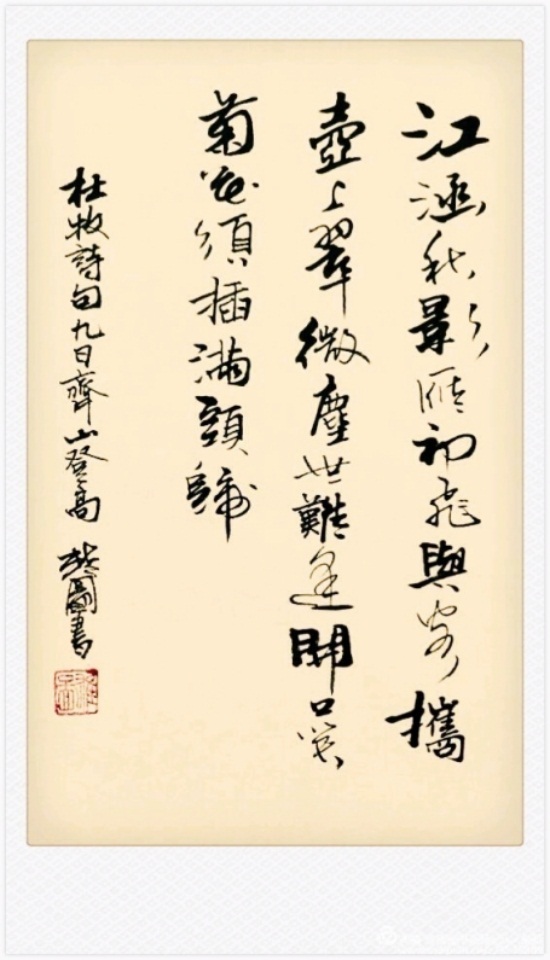 江涵秋影雁初飛與客攜
壺上翠微塵世難逢開口笑
菊花須插滿頭歸
杜牧詩句九日齊山登高 圖書